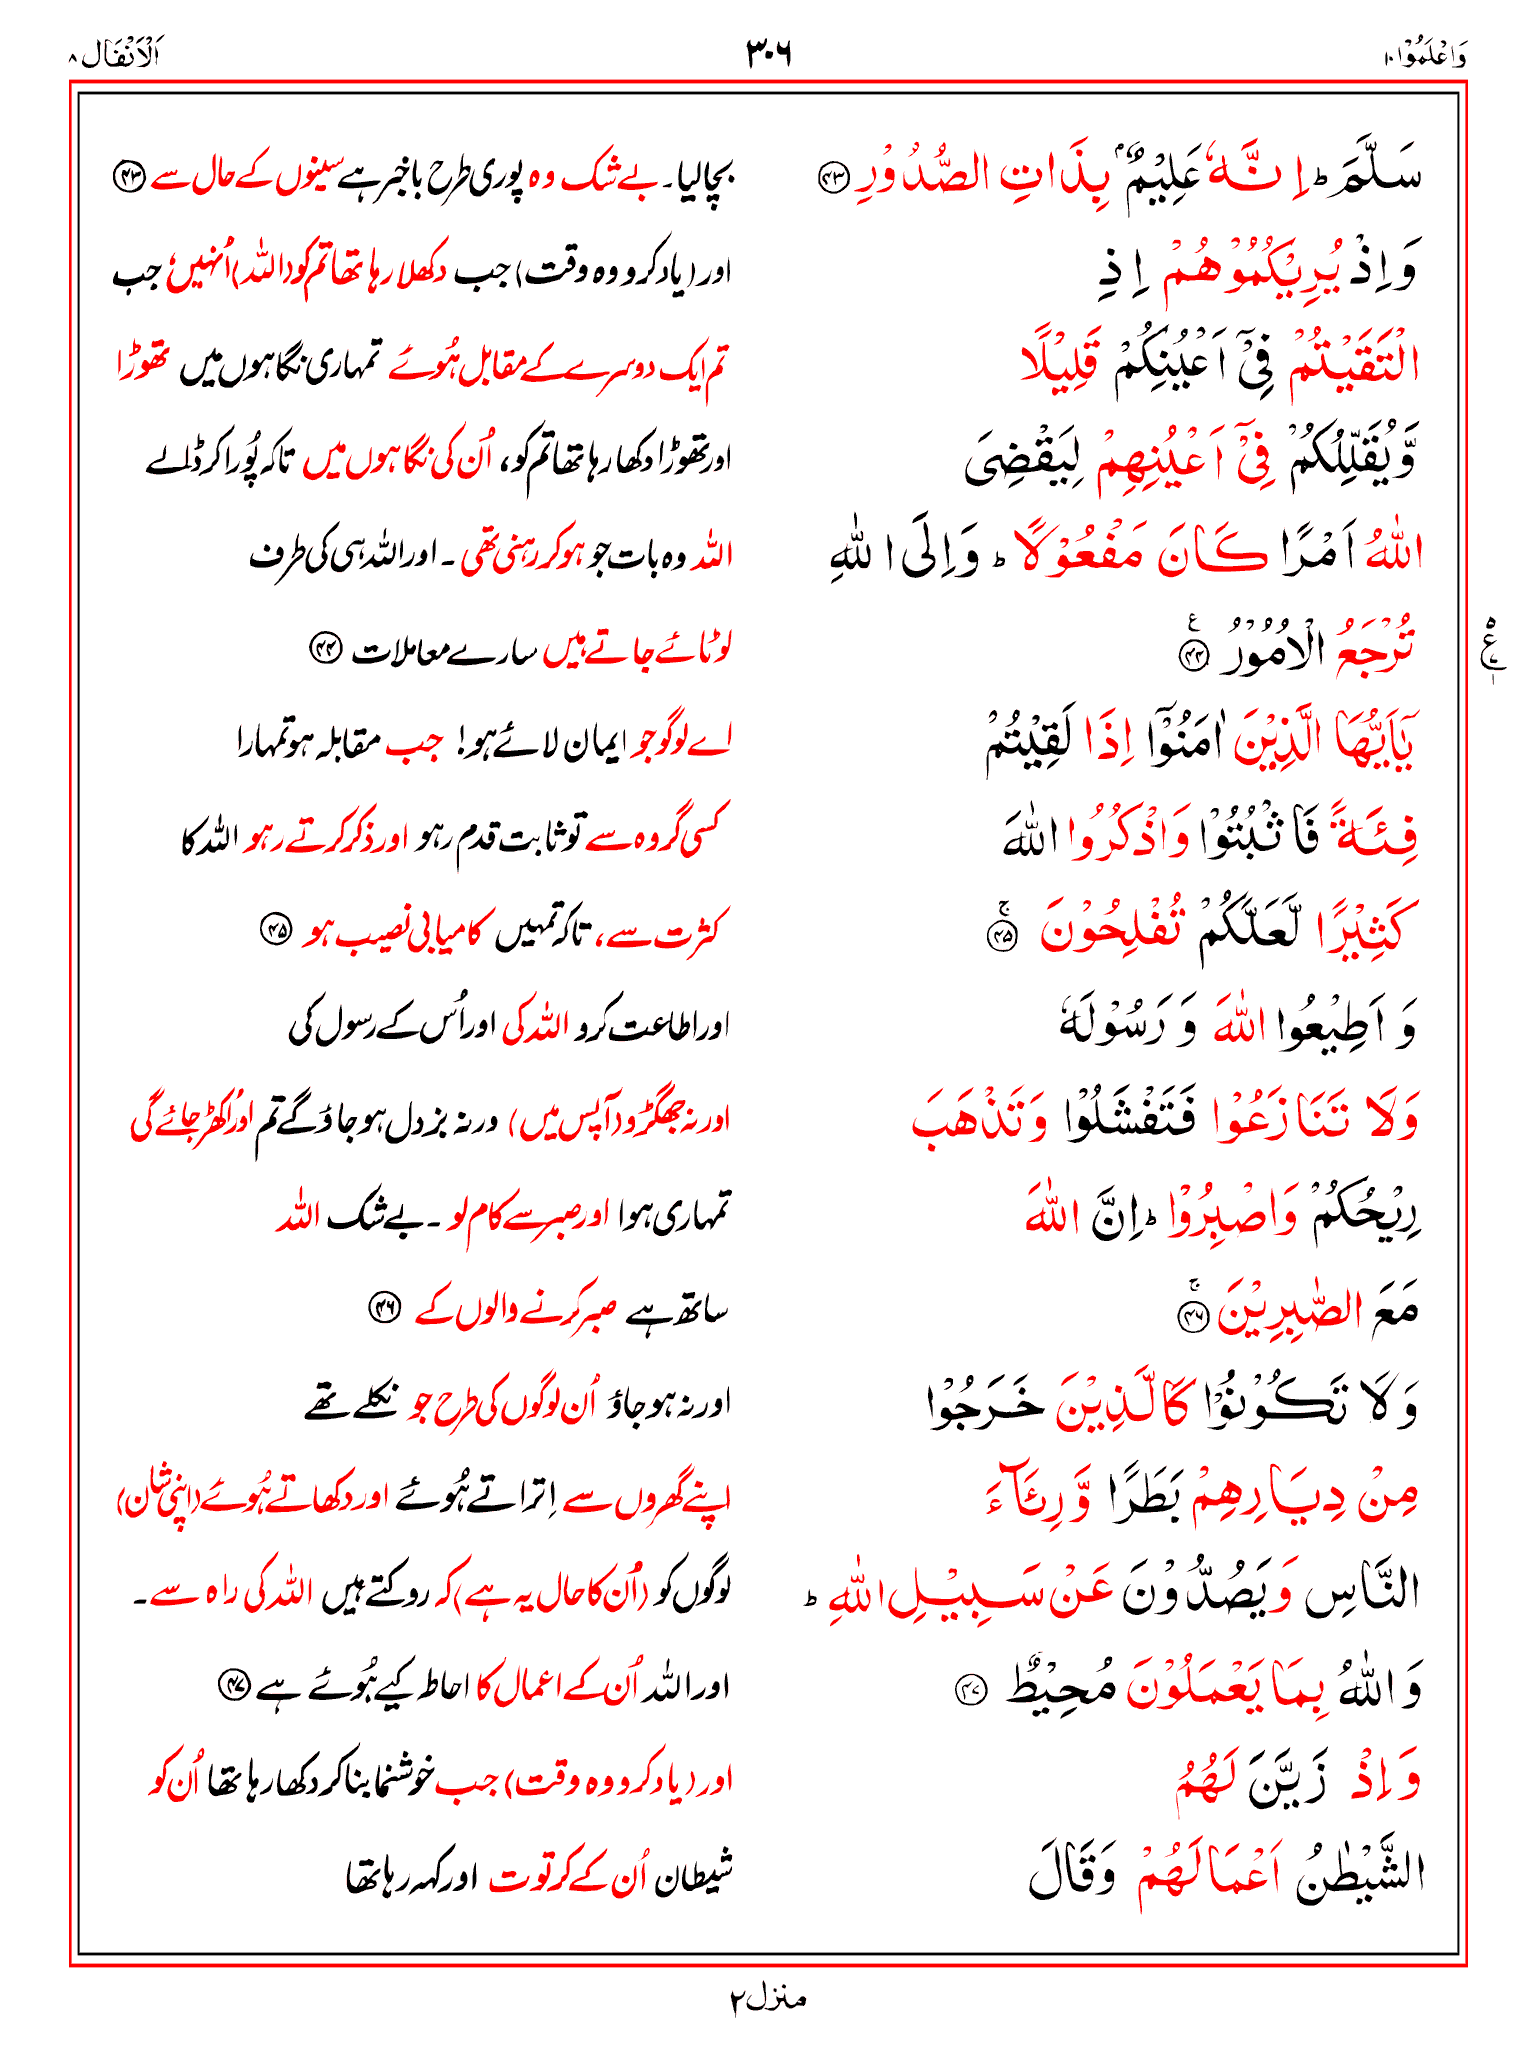 وَاعْلَمُوْا ۱۰
۳۰۶
اَلْاَنْفَال ۸
سَلَّمَ ؕ اِنَّهٗ عَلِيْمٌۢ بِذَاتِ الصُّدُوْرِ ﴿۴۳﴾ بچالیا۔ بے شک وہ پوری طرح باخبر ہے سینوں کے حال سے ﴿۴۳﴾
وَاِذْ يُرِيْكُمُوْهُمْ اِذِ اور (یاد کرو وہ وقت) جب دکھلا رہا تھا تم کو (اللہ) اُنہیں، جب
الْتَقَيْتُمْ فِيْۤ اَعْيُنِكُمْ قَلِيْلًا تم ایک دوسرے کے مقابل ہُوئے تمہاری نگاہوں میں تھوڑا
وَّيُقَلِّلُكُمْ فِيْۤ اَعْيُنِهِمْ لِيَقْضِيَ اور تھوڑا دکھا رہا تھا تم کو، اُن کی نگاہوں میں تاکہ پُورا کر ڈالے
اللّٰهُ اَمْرًا كَانَ مَفْعُوْلًا ؕ وَاِلَى اللّٰهِ اللہ وہ بات جو ہو کر رہنی تھی۔ اور اللہ ہی کی طرف
تُرْجَعُ الْاُمُوْرُ ﴿۴۴﴾ لوٹائے جاتے ہیں سارے معاملات ﴿۴۴﴾
يٰۤاَيُّهَا الَّذِيْنَ اٰمَنُوْۤا اِذَا لَقِيْتُمْ اے لوگو جو ایمان لائے ہو! جب مقابلہ ہو تمہارا
فِئَةً فَاثْبُتُوْا وَاذْكُرُوا اللّٰهَ کسی گروہ سے تو ثابت قدم رہو اور ذکر کرتے رہو اللہ کا
كَثِيْرًا لَّعَلَّكُمْ تُفْلِحُوْنَ ﴿۴۵﴾ۚ کثرت سے، تاکہ تمہیں کامیابی نصیب ہو ﴿۴۵﴾
وَ اَطِيْعُوا اللّٰهَ وَ رَسُوْلَهٗ اور اطاعت کرو اللہ کی اور اُس کے رسول کی
وَلَا تَنَازَعُوْا فَتَفْشَلُوْا وَتَذْهَبَ اور نہ جھگڑو (آپس میں) ورنہ بزدل ہو جاؤ گے تم اور اُکھڑ جائے گی
رِيْحُكُمْ وَاصْبِرُوْا ؕ اِنَّ اللّٰهَ تمہاری ہوا اور صبر سے کام لو۔ بے شک اللہ
مَعَ الصّٰبِرِيْنَ ﴿۴۶﴾ۚ ساتھ ہے صبر کرنے والوں کے ﴿۴۶﴾
وَلَا تَكُوْنُوْا كَالَّذِيْنَ خَرَجُوْا اور نہ ہو جاؤ اُن لوگوں کی طرح جو نکلے تھے
مِنْ دِيَارِهِمْ بَطَرًا وَّرِئَآءَ اپنے گھروں سے اِتراتے ہُوئے اور دکھاتے ہُوئے (اپنی شان)
النَّاسِ وَيَصُدُّوْنَ عَنْ سَبِيْلِ اللّٰهِ ؕ لوگوں کو (اُن کا حال یہ ہے) کہ روکتے ہیں اللہ کی راہ سے۔
وَاللّٰهُ بِمَا يَعْمَلُوْنَ مُحِيْطٌ ﴿۴۷﴾ اور اللہ اُن کے اعمال کا احاطہ کیے ہُوئے ہے ﴿۴۷﴾
وَاِذْ زَيَّنَ لَهُمُ اور (یاد کرو وہ وقت) جب خوشنما بنا کر دکھا رہا تھا اُن کو
الشَّيْطٰنُ اَعْمَالَهُمْ وَقَالَ شیطان اُن کے کرتوت اور کہہ رہا تھا
منزل ۲